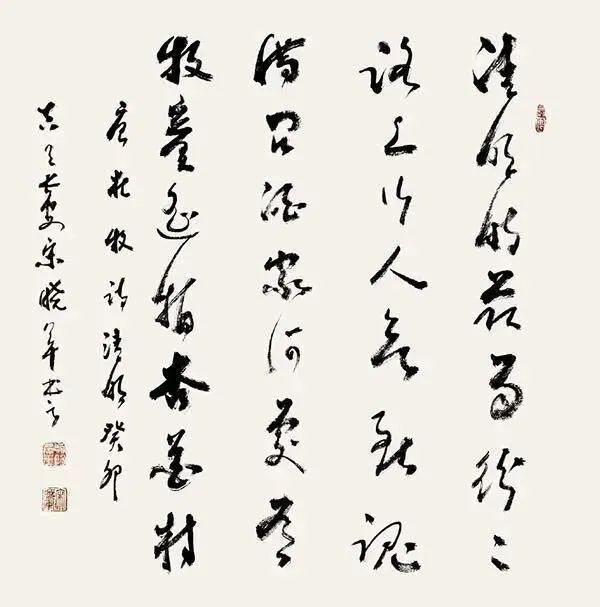 清明时节雨纷々
路上行人欲断魂
借问酒家何处有
牧童遥指杏花村
唐杜牧诗清明癸卯
宋晓军书